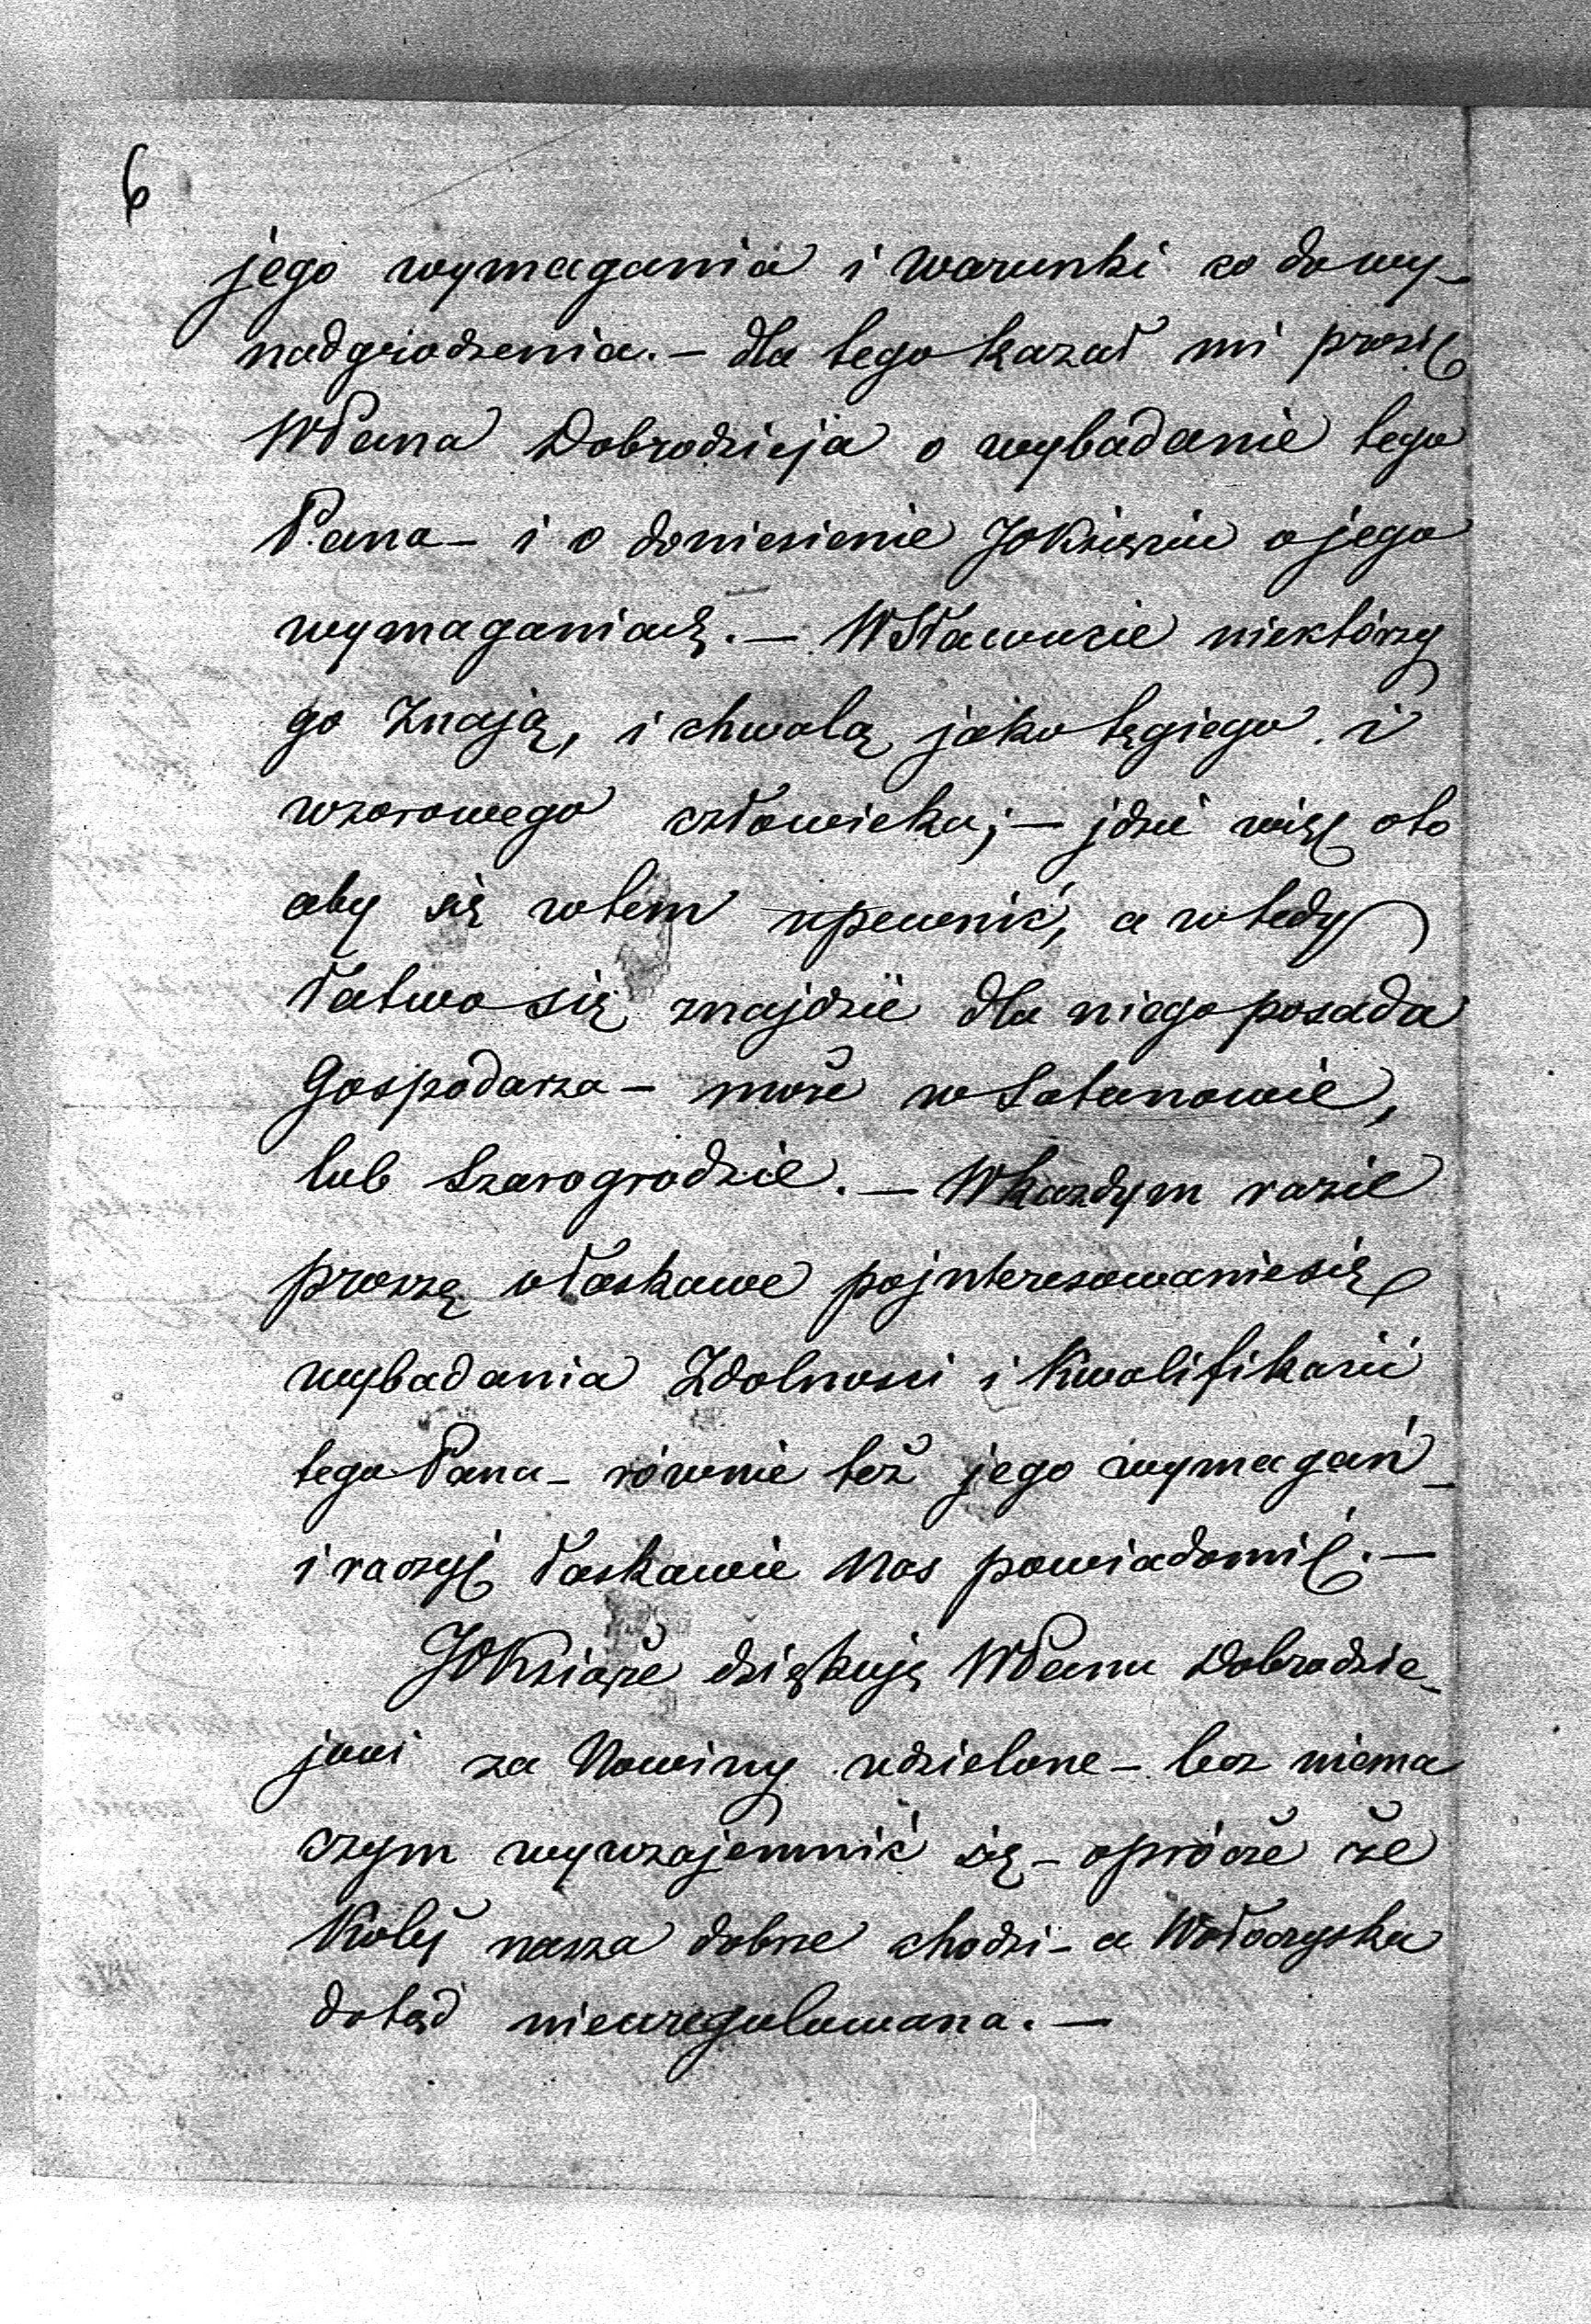 6
jego wymagania i warunki co do wy-
nadgrodzenia. — dla tego kazał mi prosić
WPana Dobrodzieja o wybadanie tego
Pana — i o doniesienie JOKsięciu o jego
wymaganiach. — W Sławucie niektórzy
go znają, i chwalą jako tęgiego i
wzorowego człowieka; — jdzie więc oto
aby się wtem upewnić, a wtedy
łatwo się znajdzie dla niego posada
Gospodarza — może w Satanowie,
lub Szarogrodzie. — W każdym razie
proszę o łaskawe pojnteresowanie się
wybadania Zdolnosci i Kwalifikacii
tego Pana — równie też jego wymagań —
i raczyć łaskawie Nas powiadomić. —
JOKsiąże dziękuję WPanu Dobrodzie-
jowi za Nowiny udzielone — lecz niema
czym wywzajemnić się — oprócz że
Kolej nasza dobrze chodzi — a Wołoczyska
dotąd nieuregulowana. —